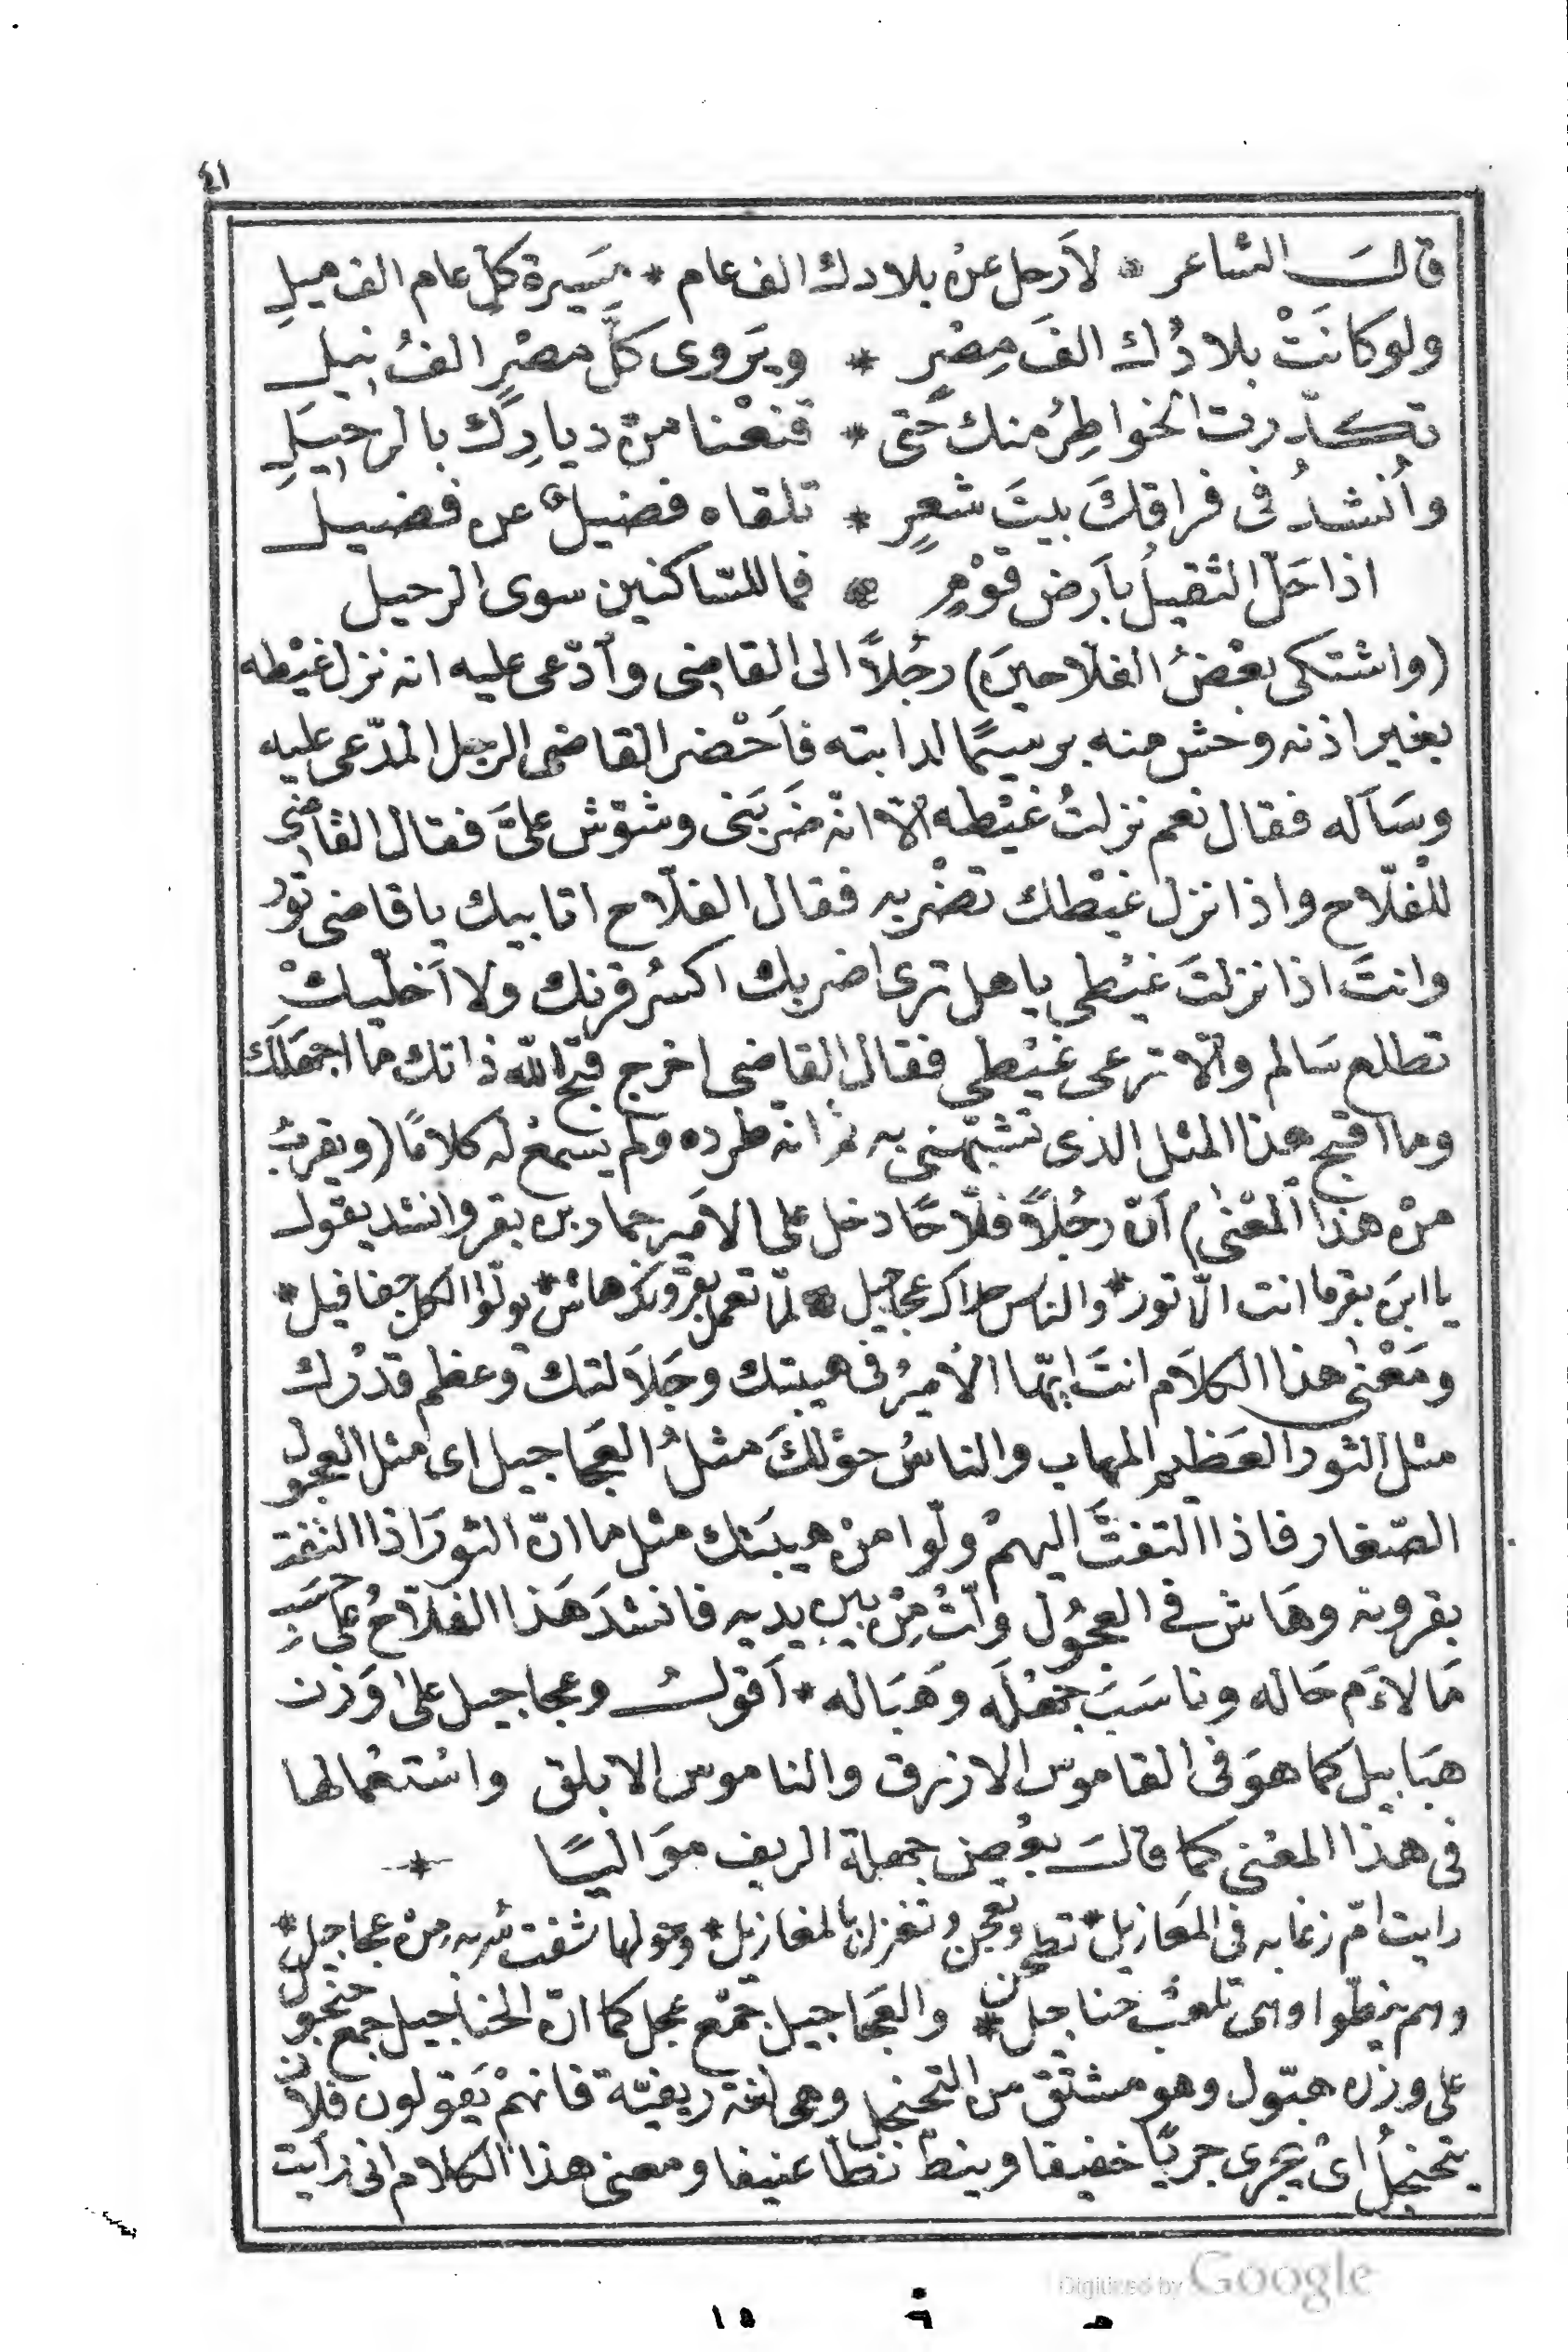 ٤١
قالَ الشاعر * لأرحل عنْ بلادك الف عام * مَسَيرة كلّ عام الف ميلِ
ولو كانَتْ بلادُك الفَ مِصْر * ويَروى كلَّ مصْرٍ الفُ نيلِ
تكدّرت الخواطِرُ منك حَتى * قنعْنا منْ ديارِك بالرحيَلِ
وأُنشدُ فى فراقكَ بيتَ شعرٍ * تلقاه فضيلٌ عن فضيل
اذا حَلّ الثقيلُ بأرض قوْمٍ * فما للسّاكنين سوى الرحيل
(واشتكى بعْضُ الفلّاحينَ) رجُلاً الى القاضى وأدّعى عليه انه نزل غيْطه
بغير اذنه وحش منه برسيمًا لدابته فأَحْضر القاضى الرجل المدّعى عليه
وسَأله فقال نعم نزلتُ غيْطه الّا انّه ضَربَنى وشوّش علىَّ فقال القاضى
للْفلّاح واذا نزل غيْطك تضْربه فقال الفلّاح انا بيك يا قاضى تور
وانتَ اذا نزلتَ غيْطى يا هل ترى اضربك اكسُر قرنك ولا أخلّيكْ
تطلع سَالم والّا ترعى غيْطى فقال القاضى اخرج قبّح الله ذاتك ما اجهَلَك
وما اقبح هذا المثل الذى تشبّهنى به ثم انه طرده ولم يسمعْ له كلامًا (ويقربُ
منْ هذا المعْنى) أنّ رجُلاً فلّاحًا دخل على الامَير حماد بن بقر وانشد يقول
يا ابنَ بقر ما انت الّا تور * والناس حداك عجاجيل * لمّا تعمل بقرونك هاش * يولّوا الكل جفافيل *
ومَعْنى هذا الكلاَم انتَ ايّها الأميرُ فى هيبتك وجَلاَلتك وعظم قدْرك
مثل الثور العَظيم المهاب والناسُ حوْلكَ مثلُ العَجاجيل اى مثل العجول
الصّغار فاذا التفتَّ اليهمْ ولّوا منْ هيبَتك مثل ما انّ الثورَ اذا التفت
بقرونه وهَاش فى العجُول ولّتْ مِنْ بين يديه فانشدَ هَذا الفلاّحُ على حسَبِ
مَا لاءَم حَاله وناسَبَ جهْلَه وهَبَاله * أقولُ وعجاجيل على وَزن
هبَابيل كما هوَ فى القاموس الازرق والناموس الابلق واسْتعْمالها
فى هذا المعْنى كما قالَ بعْض جهلة الريف موَاليًا *
رايت امّ زغابه فى المَعازيل * تطحن وتعجن وتغزل بالمغازيل * وحولها شفت سُربه مِنْ عجاجيل *
وهم ينطّوا وهى تلعبْ حناجل * والعَجاجيل جمْع عجل كما انّ الحناجيل جمع حنجول
على وزن هبّول وهو مشتقّ من التحنجل وهى لغة ريفيّة فانهمْ يَقولون فلانٌ
يتحنجلُ اىْ يجرى جريًا خفيفا وينطّ نطّا عنيفا ومعنى هذا الكلام انى رأيت
Digitized by Google
١٥ ف ه